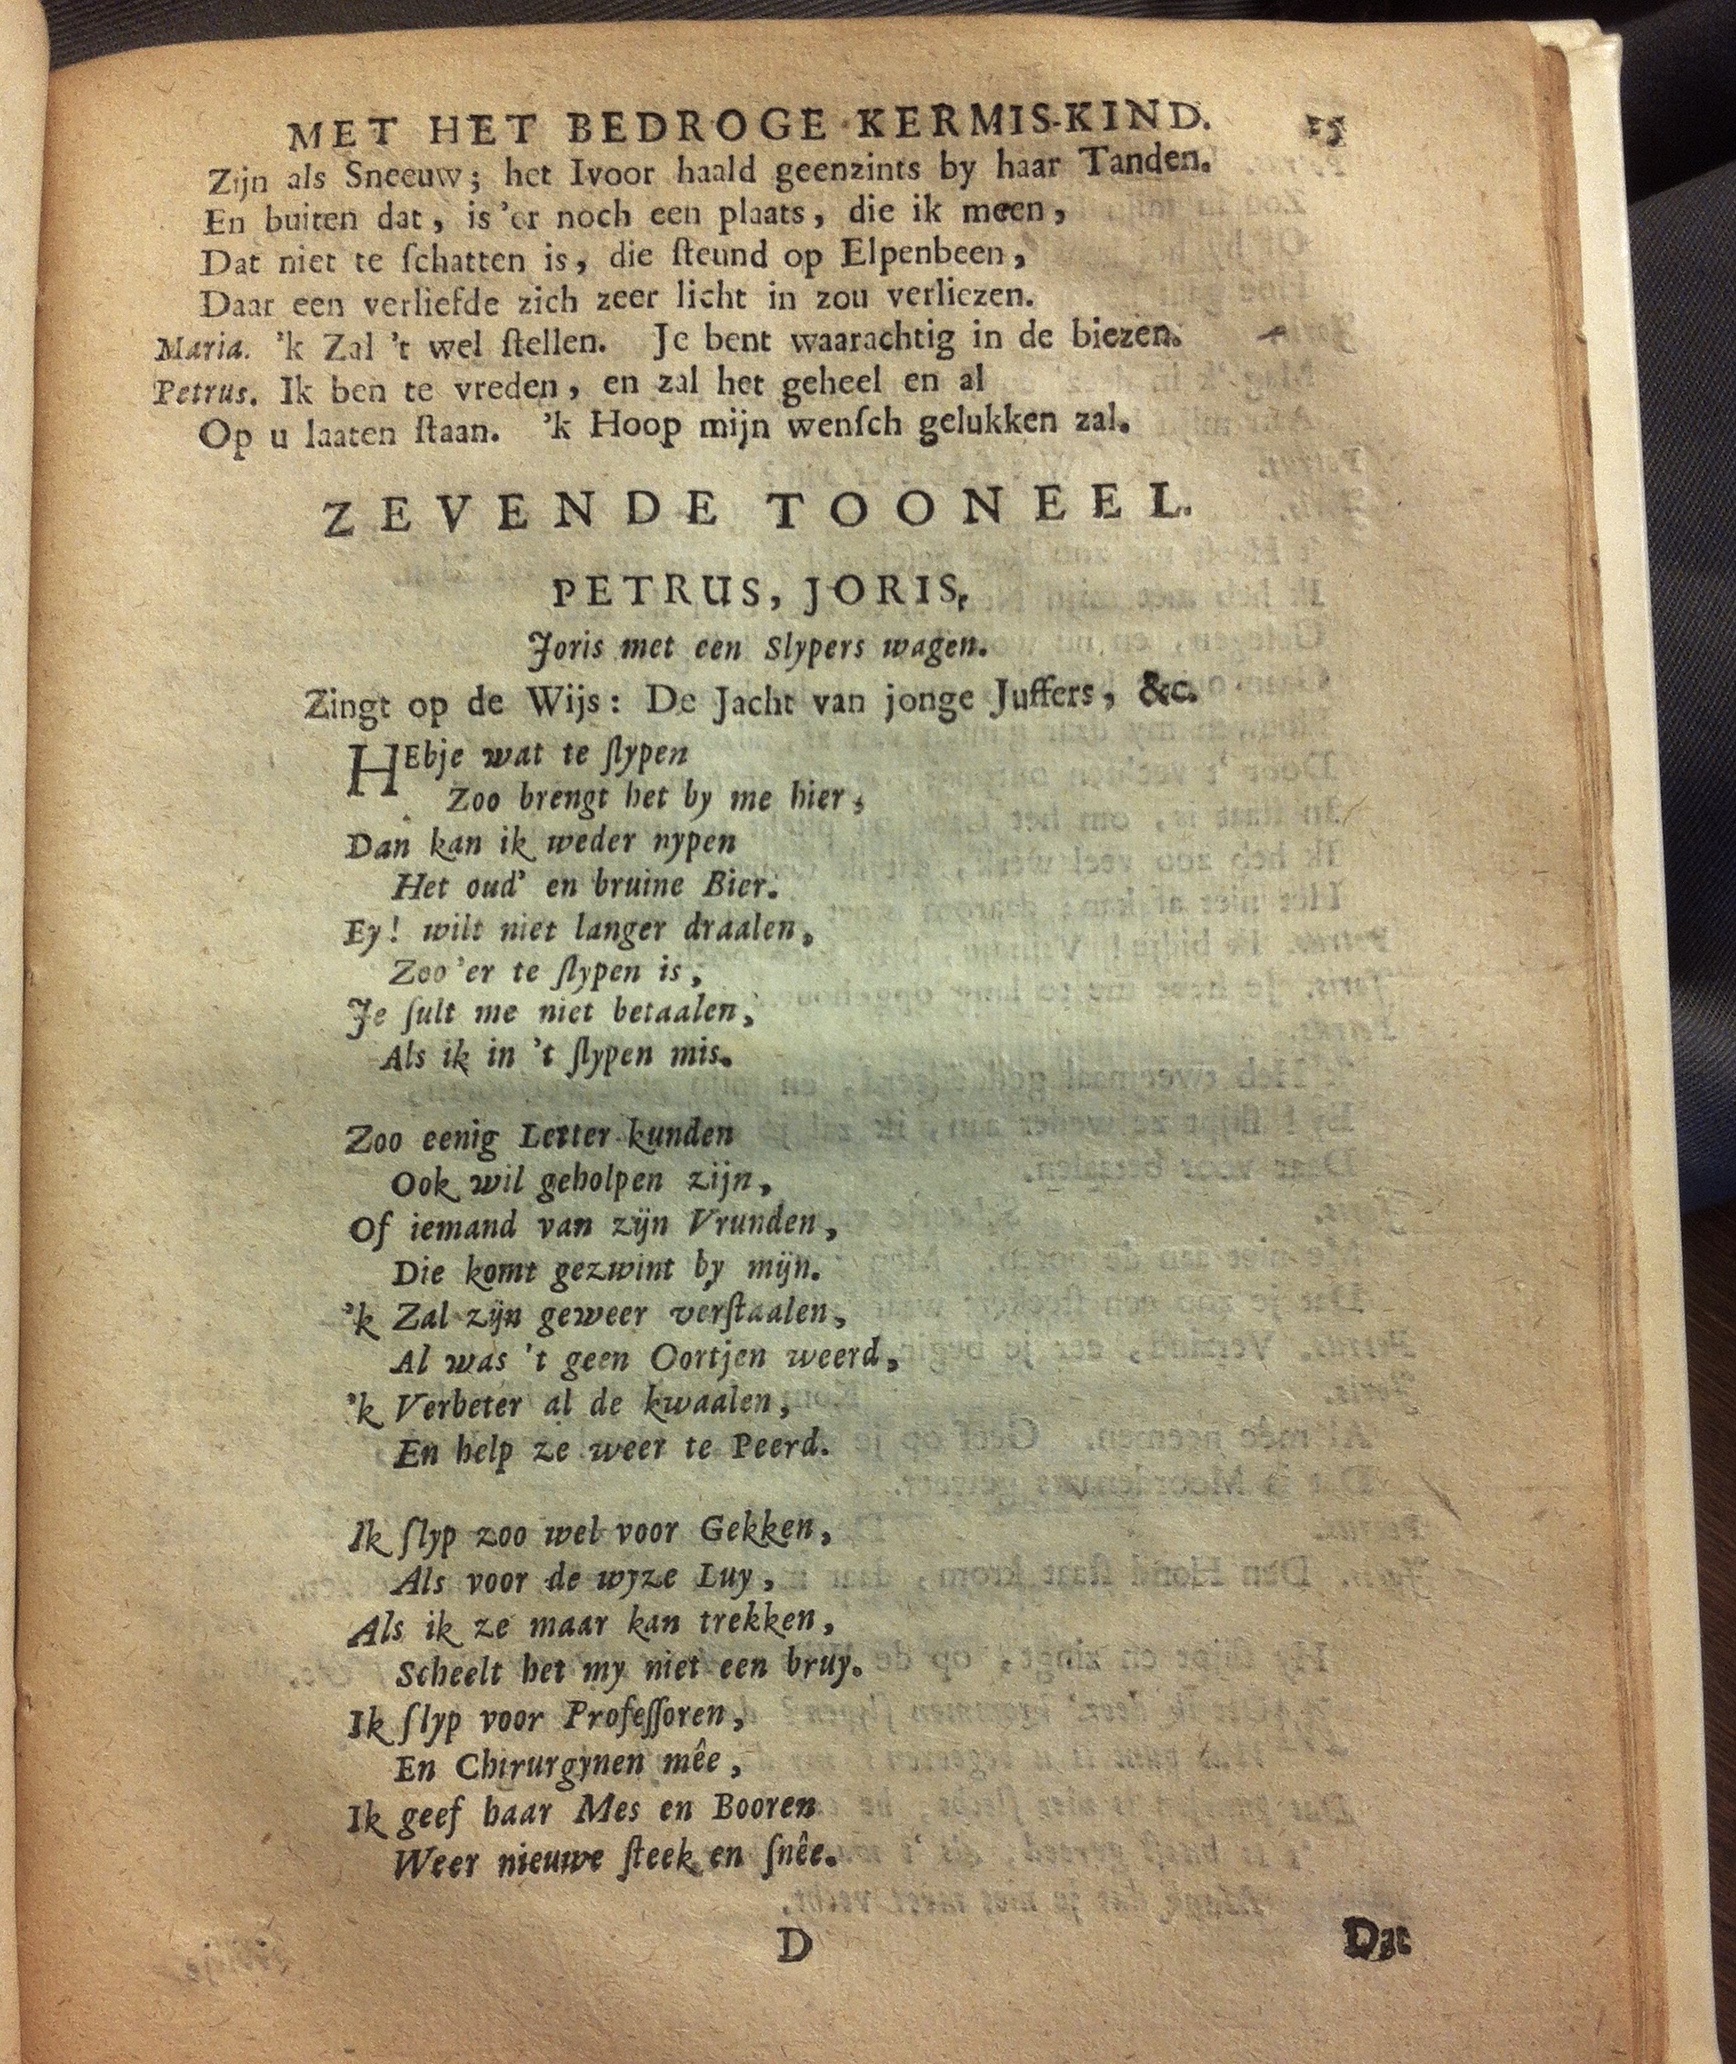 MET HET BEDROGE KERMIS-KIND. 25
Zijn als Sneeuw; het Ivoor haald geenzints by haar Tanden.
En buiten dat, is 'er noch een plaats, die ik meen,
Dat niet te ſchatten is, die ſteund op Elpenbeen,
Daar een verliefde zich zeer licht in zou verliezen.
Maria. 'k Zal 't wel ſtellen. Je bent waarachtig in de biezen.
Petrus. Ik ben te vreden, en zal het geheel en al
Op u laaten ſtaan. 'k Hoop mijn wenſch gelukken zal.
ZEVENDE TOONEEL.
PETRUS, JORIS,
Joris met een Slypers wagen.
Zingt op de Wijs: De Jacht van jonge Juffers, &c.
HEbje wat te ſlypen
Zoo brengt het by me hier,
Dan kan ik weder nypen
Het oud' en bruine Bier.
Ey! wilt niet langer draalen,
Zoo 'er te ſlypen is,
Je ſult me niet betaalen,
Als ik in 't ſlypen mis.
Zoo eenig Letter-kunden
Ook wil geholpen zijn,
Of iemand van zijn Vrunden,
Die komt gezwint by mijn.
'k Zal zijn geweer verſtaalen,
Al was 't geen Oortjen weerd,
'k Verbeter al de kwaalen,
En help ze weer te Peerd.
Ik ſlyp zoo wel voor Gekken,
Als voor de wyze Luy,
Als ik ze maar kan trekken,
Scheelt het my niet een bruy.
Ik ſlyp voor Profeſſoren,
En Chirurgynen mêe,
Ik geef haar Mes en Booren
Weer nieuwe ſteek en ſnêe.
D Dat